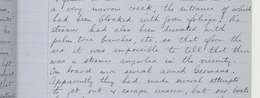 a very narrow creek, the entrance of which
had been blocked with green foliage. The
steamer had also been decorated with
palm tree branches, etc, so that from the
sea it was impossible to tell that there
was a steamer anywhere in the vicinity.
On board were several armed Germans.
Apparently they had made several attempts
to get out & escape, but our boats